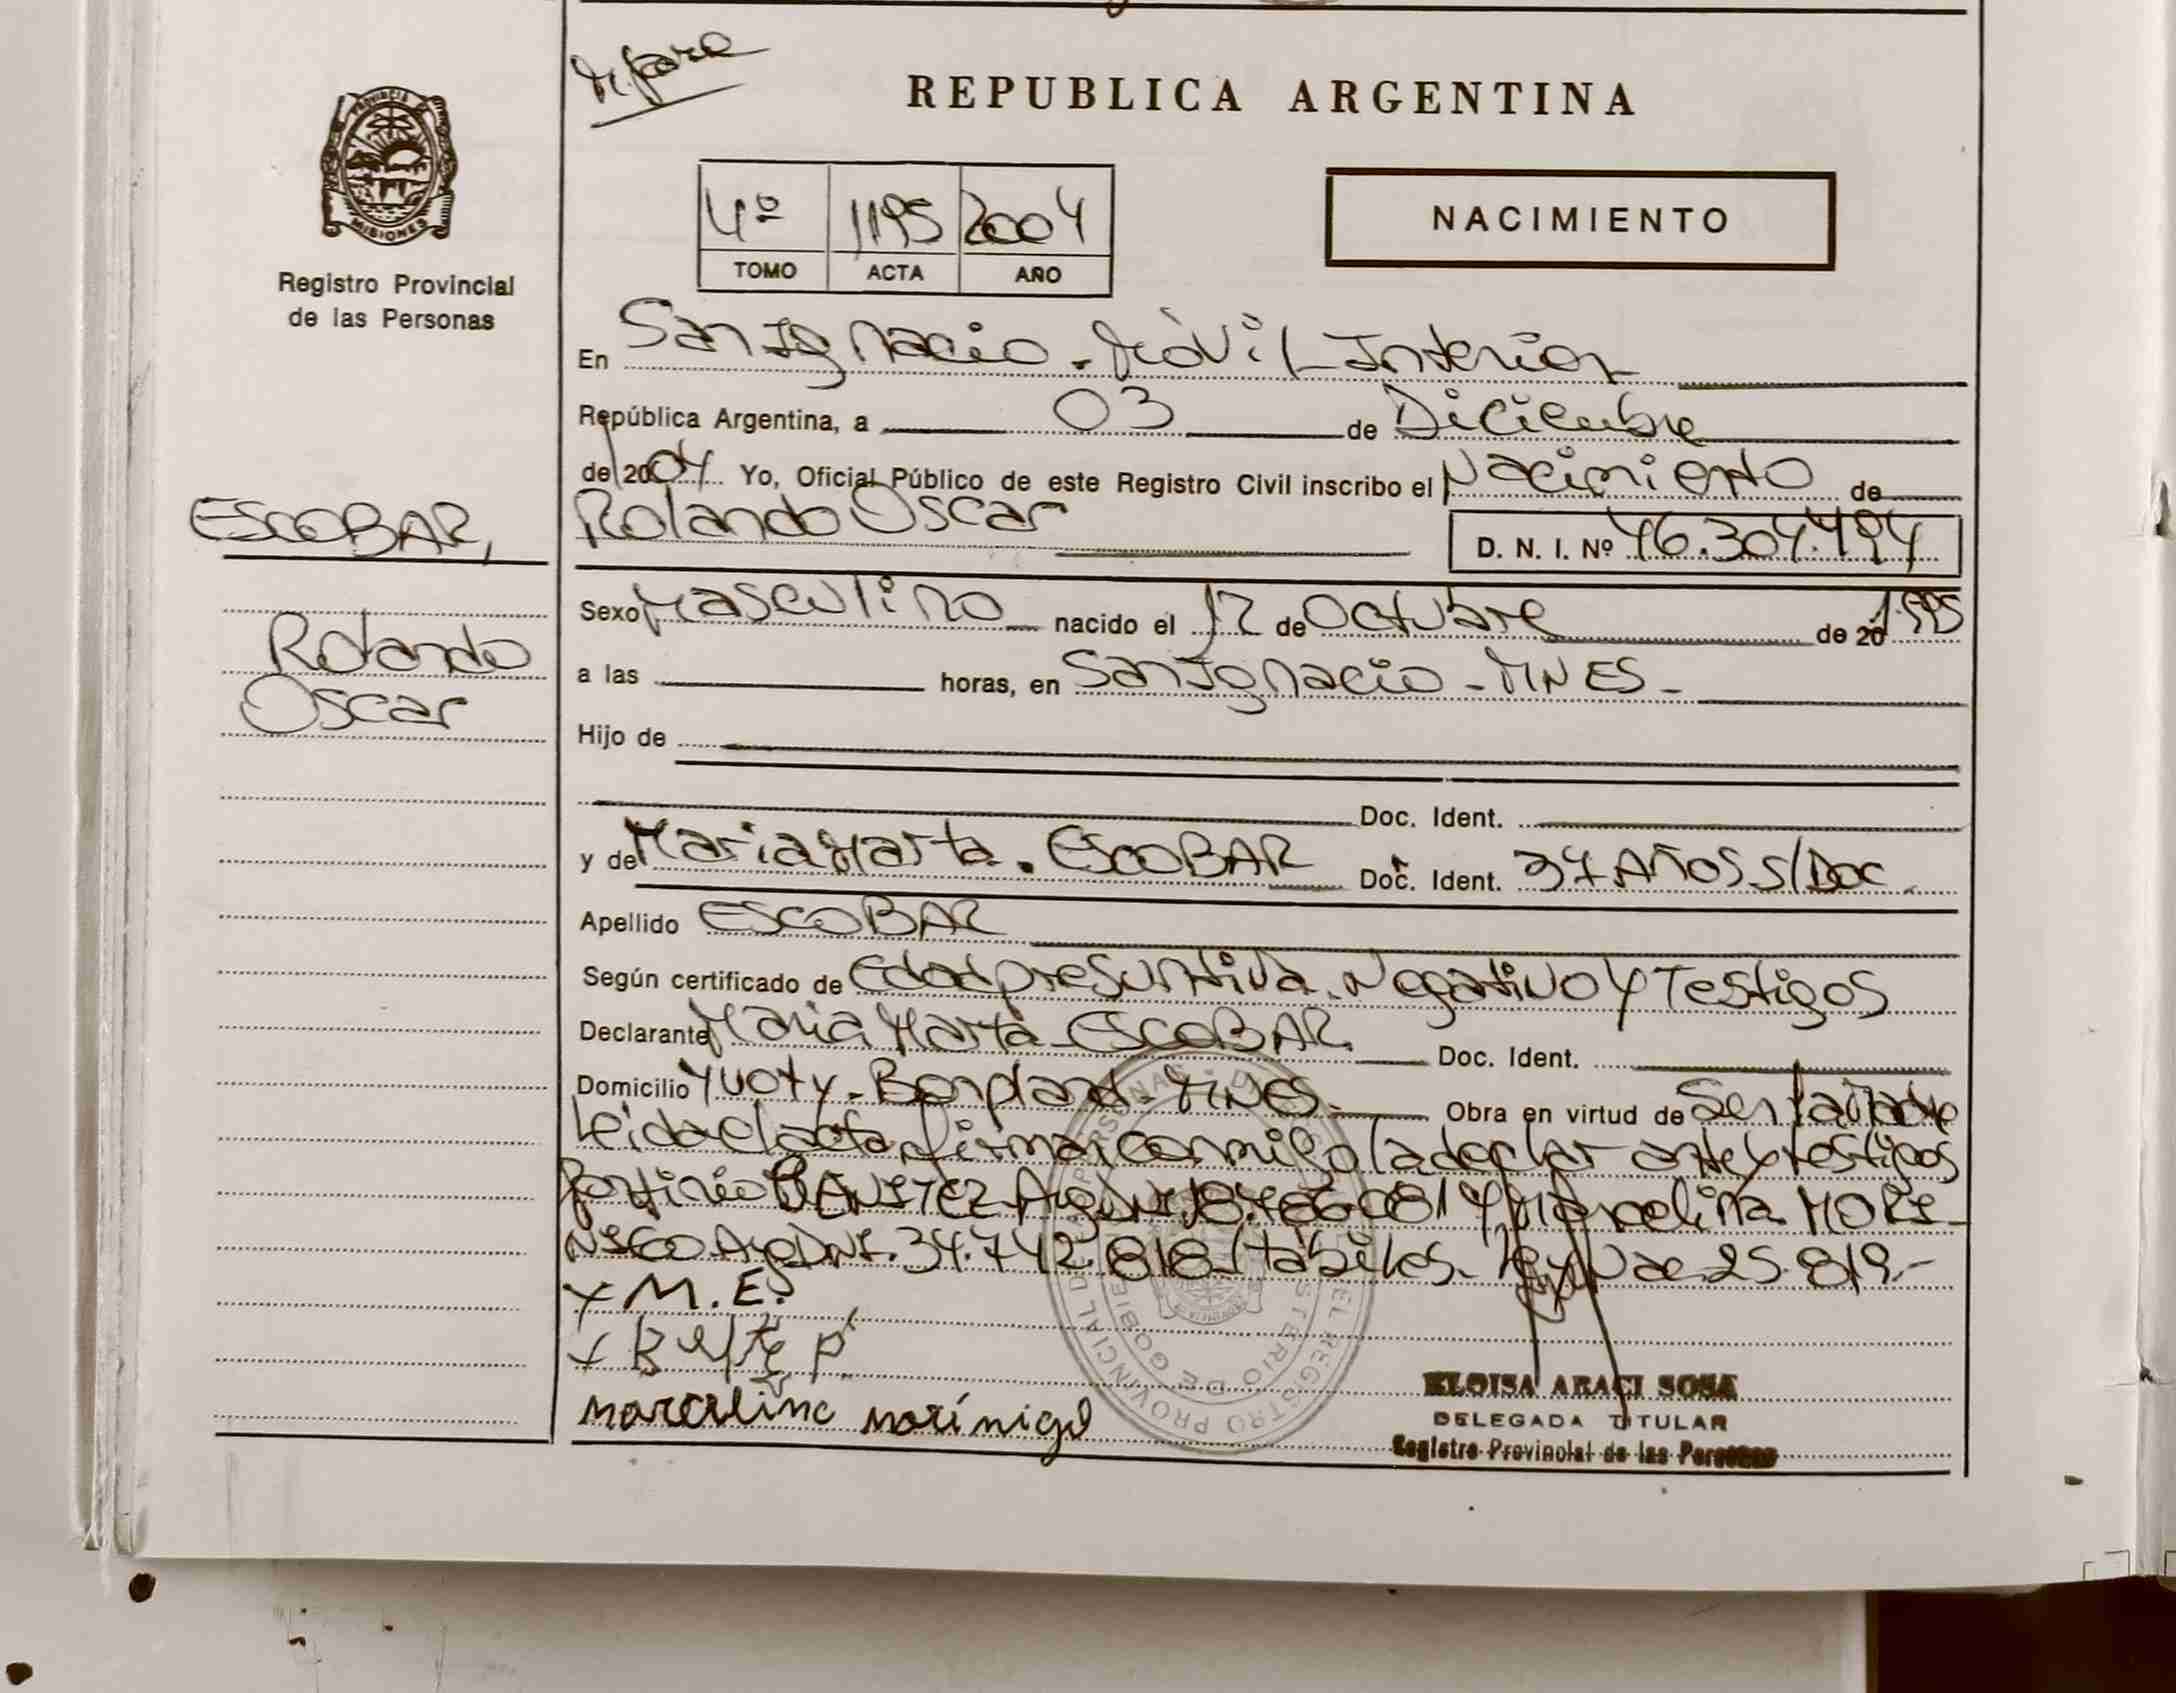 REPUBLICA ARGENTINA
PROVINCIA DE
MISIONES
Registro Provincial
de las Personas
4º 1195 2004
TOMO ACTA AÑO
NACIMIENTO
En San Ignacio - Móvil Interior
República Argentina, a 03 de Diciembre
de 2004 Yo, Oficial Público de este Registro Civil inscribo el Nacimiento de
ESCOBAR,
Rolando Oscar
D. N. I. Nº 46.304.494
Rolando
Oscar
Sexo Masculino nacido el 12 de Octubre de 20 1.995
a las horas, en San Ignacio - MNES -
Hijo de
Doc. Ident.
y de Maria Marta. ESCOBAR Doc. Ident. 37 AÑOS S/Doc.
Apellido ESCOBAR
Según certificado de Edad presuntiva. Negativo y Testigos
Declarante Maria Marta ESCOBAR Doc. Ident.
Domicilio Yvoty - Bonpland - MNES - Obra en virtud de Ser la Madre
Leida el acta firman conmigo la declarante y testigos
Porfirio BENITEZ Arg DNI 18.786.081 y Marcelina MORI-
NIGO Arg DNI. 34.742.818 Habiles. Ley Nac 25.819.-
x M. E.
x
marcelina morínigo
ELOISA ARACI SOSA
DELEGADA TITULAR
Registro Provincial de las Personas